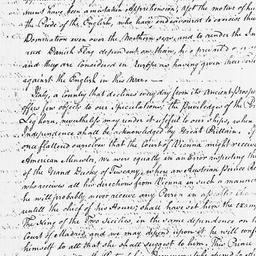 have been a mistaken apprehension; of the motives of
the Pride of the English, who have endeavoured to exercise their
Domination even over the Northern seas, and to render the
Danish Flag dependent on them, has prevailed
and they are considered in Europe as having given their
against the English in this War.
Italy, a Country that declines every day from its ancient Prosperity
offers few objects to our Speculations, the Privileges of the Port
Leghorn, nevertheless may render it useful to our ships, when
Independence shall be acknowledged by Great Britain. If
once flattered ourselves that the Court of Vienna might receive
American Minister, we were equally in an Error respecting the
of the Grand Duke of Tuscany, where an Austrian Prince
who receives all his directions from Vienna in such a manner
he will probably never receive any Person in
until the chief of his House, shall have set him the example
The King of the Two Sicilies, in the same dependence on the
Court of Madrid, and we may depend upon it he will conform
himself to all that she shall suggest to him. This Prince